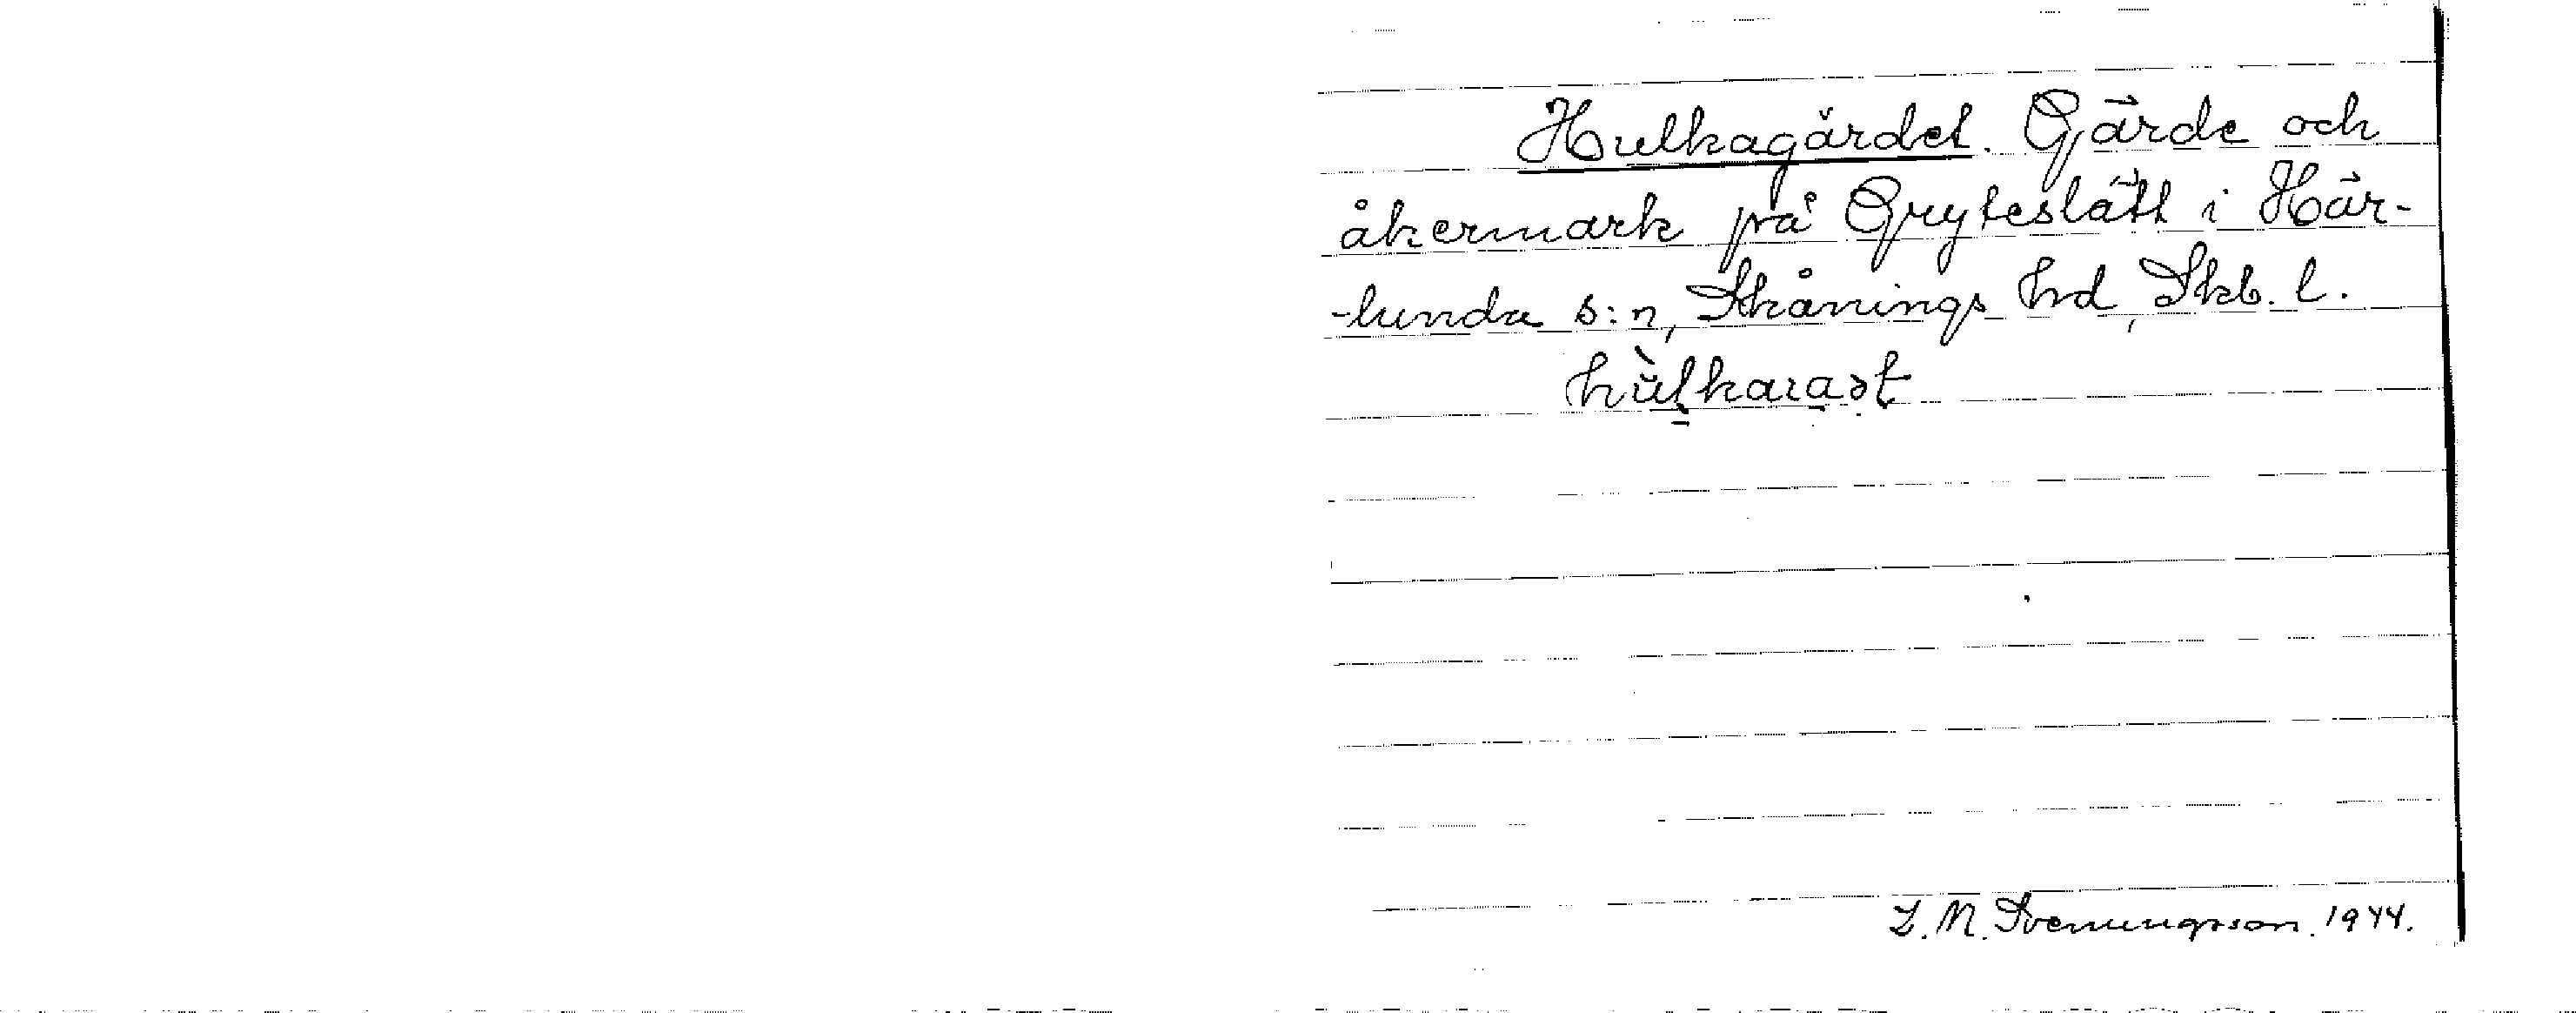 Hulkagärdet. Gärde och
åkermark på Gryteslätt i Här-
-lunda s:n, Skånings hd, Skb. l.
hùlkaɹaət
I. M. Svenungsson. 1944.